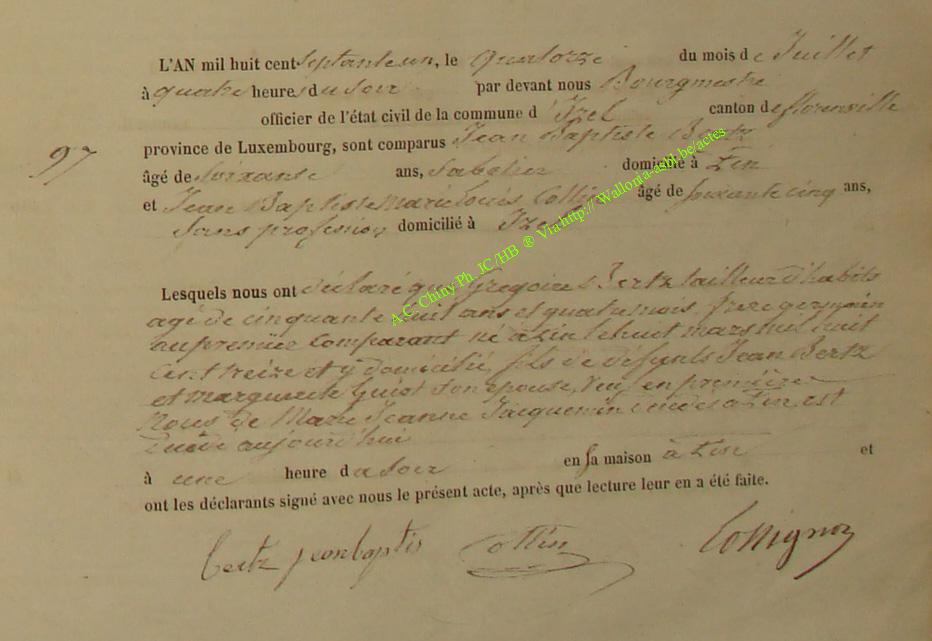 L'AN mil huit cent septante un, le Quatorze du mois de Juillet
à quatre heures du soir par devant nous Bourgmestre
officier de l'état civil de la commune d'Izel canton de florenville
97
province de Luxembourg, sont comparus Jean Baptiste Bertz
âgé de soixante ans, sabotier domicilié à Pin
et Jean Baptiste Marie Louis Collin âgé de soixante cinq ans,
sans profession domicilié à Izel
A.C. Chiny Ph. JC/HB ® Via http://Wallonia-asbl.be/actes
Lesquels nous ont déclaré que Gregoire Bertz tailleur d'habits
agé de cinquante huit ans et quatre mois, frere germain
au premier comparant né à Pin le huit mars mil huit
cent treize et y domicilié, fils de defunts Jean Bertz
et marguerite Guiot son epouse, en première
Noces de Marie Jeanne Jacquemin à Pin est
décédé aujourd'hui
à une heure du soir en sa maison à Pin et
ont les déclarants signé avec nous le présent acte, après que lecture leur en a été faite.
Bertz jean baptis Collin